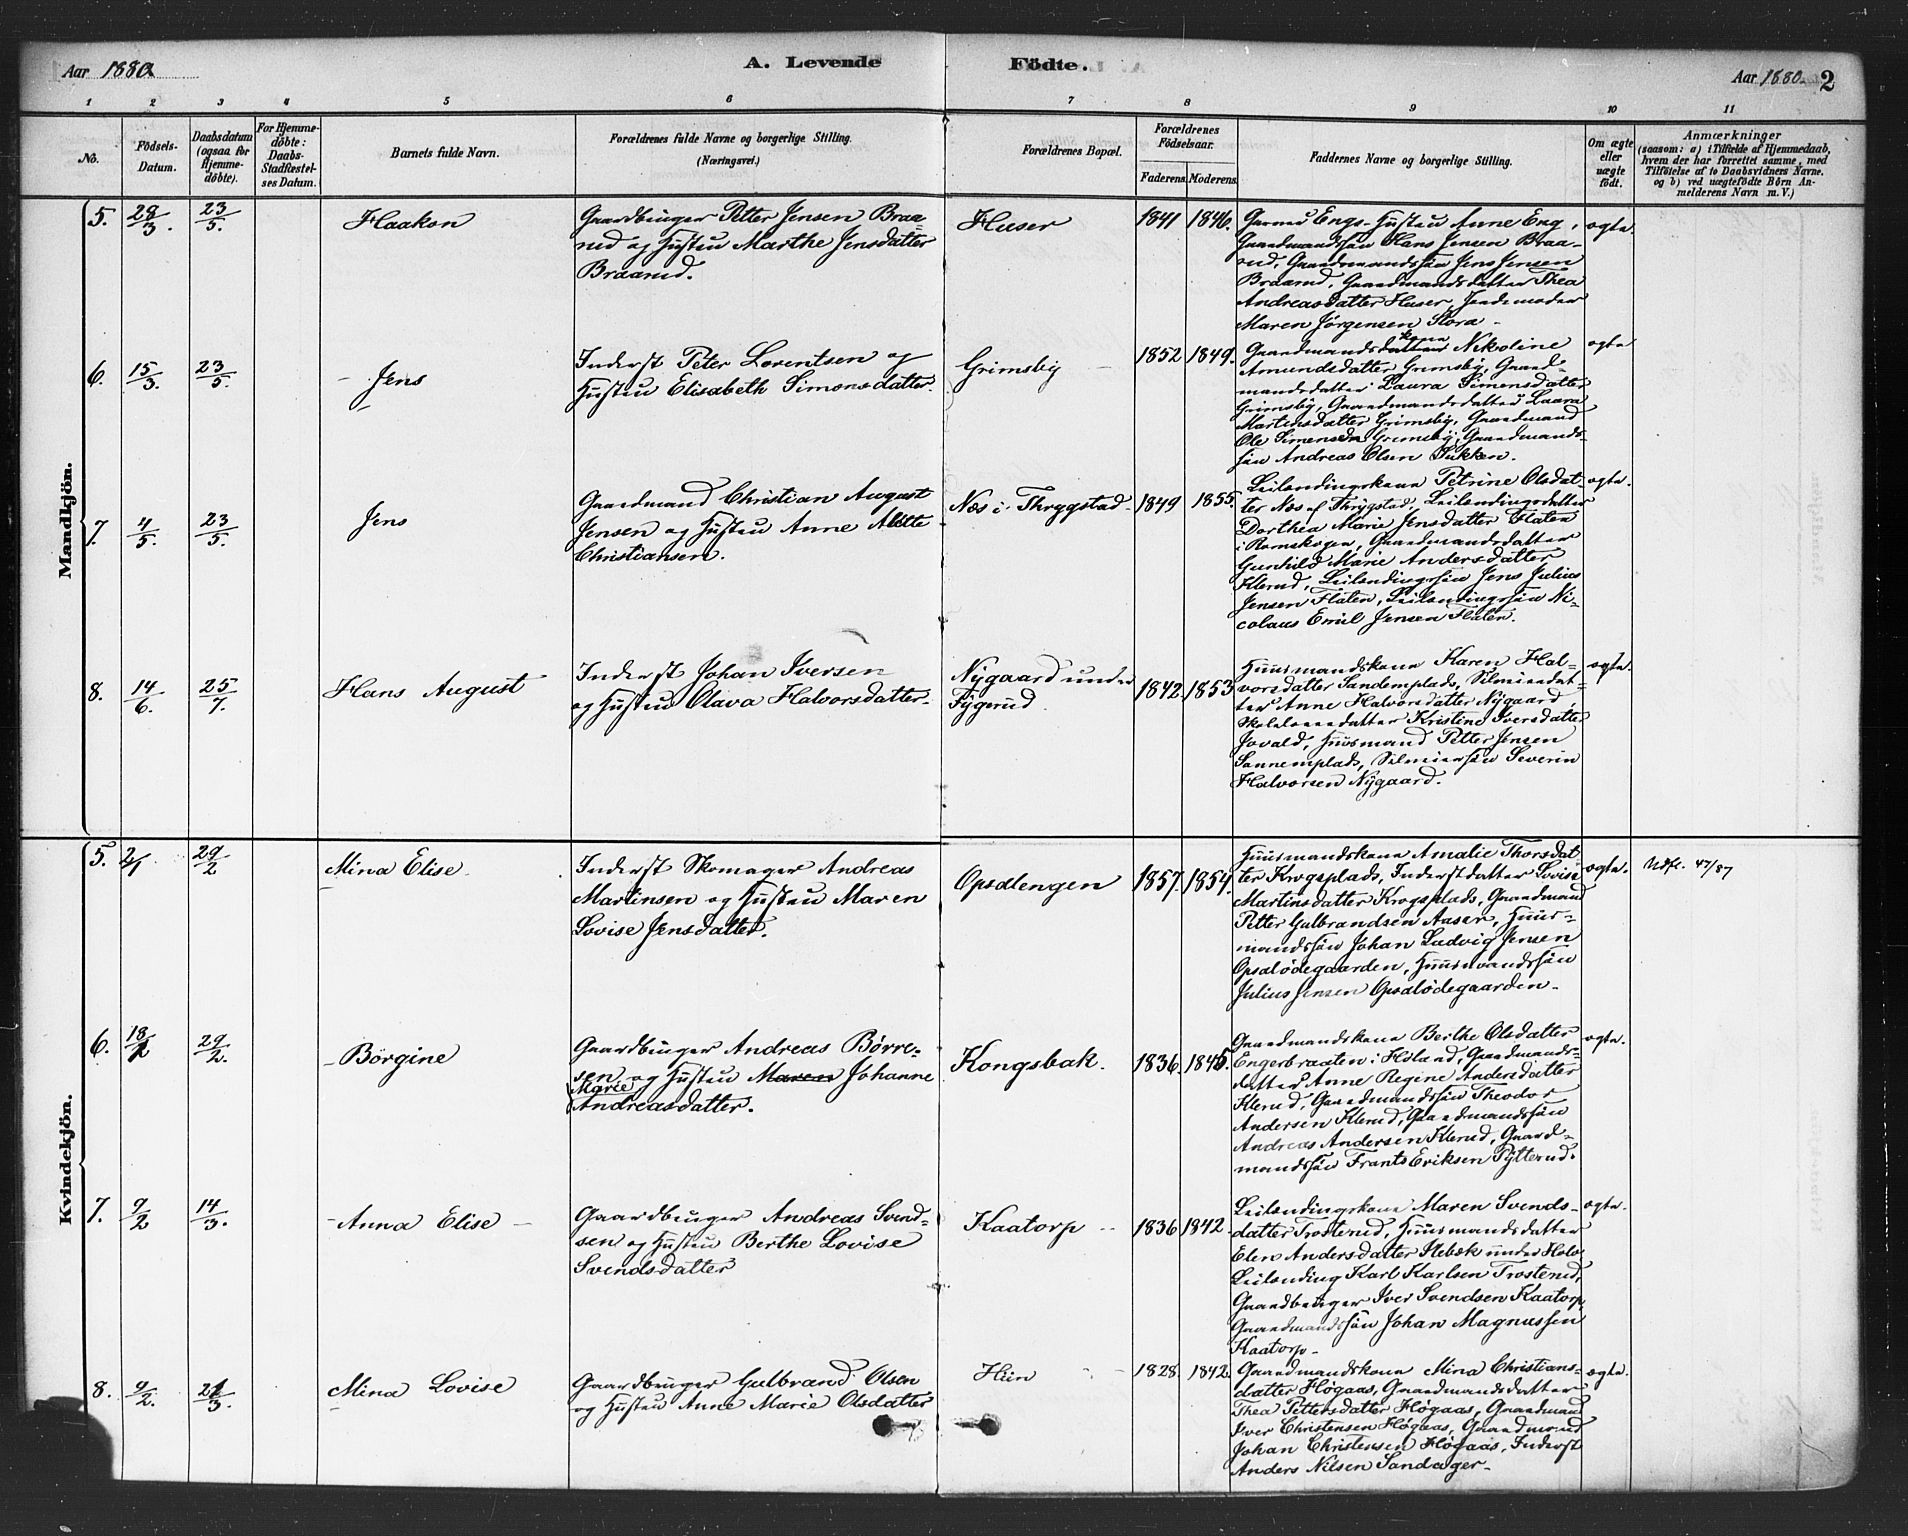 Aar 1880
A. Levende Födte.
Aar 1880.
2
1 2 3 4 5 6 7 8 9 10 11
No.
Födsels-
Datum.
Daabsdatum
(ogsaa for
Hjemme-
döbte).
For Hjemme-
döbte:
Daabs-
Stadfæstel-
ses Datum.
Barnets fulde Navn.
Forældrenes fulde Navne og borgerlige Stilling.
(Næringsvei.)
Forældrenes Bopæl.
Forældrenes
Födselsaar.
Faderens. Moderens.
Faddernes Navne og borgerlige Stilling.
Om ægte
eller
uægte
födt.
Anmærkninger
(saasom: a) i Tilfælde af Hjemmedaab,
hvem der har forrettet samme, med
Tilföielse af to Daabsvidners Navne.
og b) ved uægtefödte Börn An-
melderens Navn m. V.)
Mandkjön.
5. 28/3. 23/5.
Haakon
Gaardbruger Petter Jensen Braa-
rud og Hustru Marthe Jensdatter
Braarud.
Huser
1841 1846.
Hustru Anne Eng,
Gaardmandssön Hans Jensen Braa-
rud, Gaardmandssön Jens Jensen
Braarud, Gaardmandsdatter Thea
Andreasdatter Huser, Jordemoder
Maren Jörgensen Slora
ægte.
6. 15/3. 23/5.
Jens
Inderst Peter Lorentsen og
Hustru Elisabeth Simonsdatter.
Grimsby
1852 1849.
Nikoline
Amundsdatter Grimsby, Gaard-
mandsdatter Laura Simensdatter
Grimsby, Gaardmandsdatter Laura
Martinsdatter Grimsby, Gaardmand
Ole Simensen Grimsby, Gaardmands-
sön Andreas Olsen
ægte
7. 4/5. 23/5.
Jens
Gaardmand Christian August
Jensen og Hustru Anne Alette
Christiansen.
Næs i Thrygstad
1849 1855.
Leilendingskone Petrine Olsdat-
ter Næs af Thrygstad, Leilendingsdatter
Dorthea Marie Jensdatter Flaten
i Romskogen, Gaardmandsdatter
Gunhild Marie Andersdatter
Klerud, Leilendingssön Jens Julius
Jensen Flaten, Leilendingssön Ni-
colaus Emil Jensen Flaten.
ægte.
8. 14/6. 25/7.
Hans August
Inderst Johan Iversen
og Hustru Olava Halvorsdatter.
Nygaard under
Fygerud.
1842. 1853
Huusmandskone Karen Hal-
vorsdatter Sandemplads,
Anne Halvorsdatter Nygaard,
Kristine Iversdatter
Huusmand Petter Jensen
Sannemplads, Severin
Halvorsen Nygaard.
ægte.
Kvindekjön.
5. 2/1 29/2
Mina Elise.
Inderst Skomager Andreas
Martinsen og Hustru Maren
Lovise Jensdatter.
Opsdlengen
1857. 1854.
Huusmandskone Amalie Thorsdat-
ter Krogsplads, Inderstdatter Lovise
Martinsdatter Krogsplads, Gaardmand
Petter Gulbrandsen Aaser, Huus-
mandssön Johan Ludvig Jensen
Opsalödegaarden, Huusmandssön
Julius Jensen Opsalödegaarden.
ægte.
Udfl. 47/87
6. 18/1 29/2.
Börgine
Gaardbruger Andreas Börre-
sen og Hustru Maren Johanne
Marie
Andreasdatter.
Kongsbak.
1836. 1845.
Gaardmandskone Berthe Olsdatter
Engerbraaten i Höland, Gaardmands-
datter Anne Regine Andersdatter
Klerud, Gaardmandssön Theodor
Andersen Klerud, Gaardmandssön
Andreas Andersen Klerud, Gaard-
mandssön Frants Eriksen Tytterud.
ægte.
7. 9/2 14/3.
Anna Elise
Gaardbruger Andreas Svend-
sen og Hustru Berthe Lovise
Svendsdatter
Kaatorp
1836 1842.
Leilendingskone Maren Svends-
datter Trosterud, Huusmandsdatter
Elen Andersdatter Slebæk under
Leilending Karl Karlsen Trosterud,
Gaardbruger Iver Svendsen Kaatorp,
Gaardmandssön Johan Magnussen
Kaatorp
ægte.
8. 9/2. 21/3.
Mina Lovise
Gaardbruger Gulbrand Olsen
og Hustru Anne Marie Olsdatter
Hiin
1828. 1842.
Gaardmandskone Mina Christians-
datter Högaas, Gaardmandsdatter
Thea Pettersdatter Högaas, Gaardmand
Iver Christensen Högaas, Gaardmand
Johan Christensen Högaas, Inderst
Anders Nilsen Sandager
ægte.